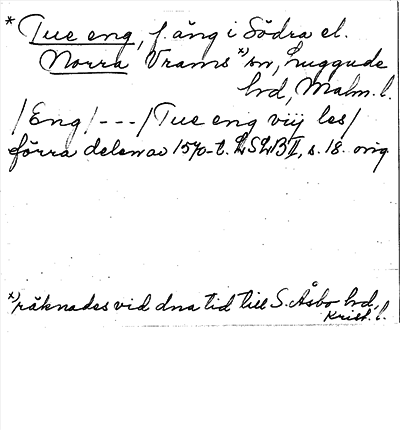 * Tue eng, f. äng i Södra el.
Norra Vrams *) sn, Luggude
hd, Malm. l.
/Eng/---/Tue eng vij les/
förra delen av 1570-t. LSLB II, s. 18. orig
*) räknades vid dna tid till S. Åsbo hd,
Krist. l.